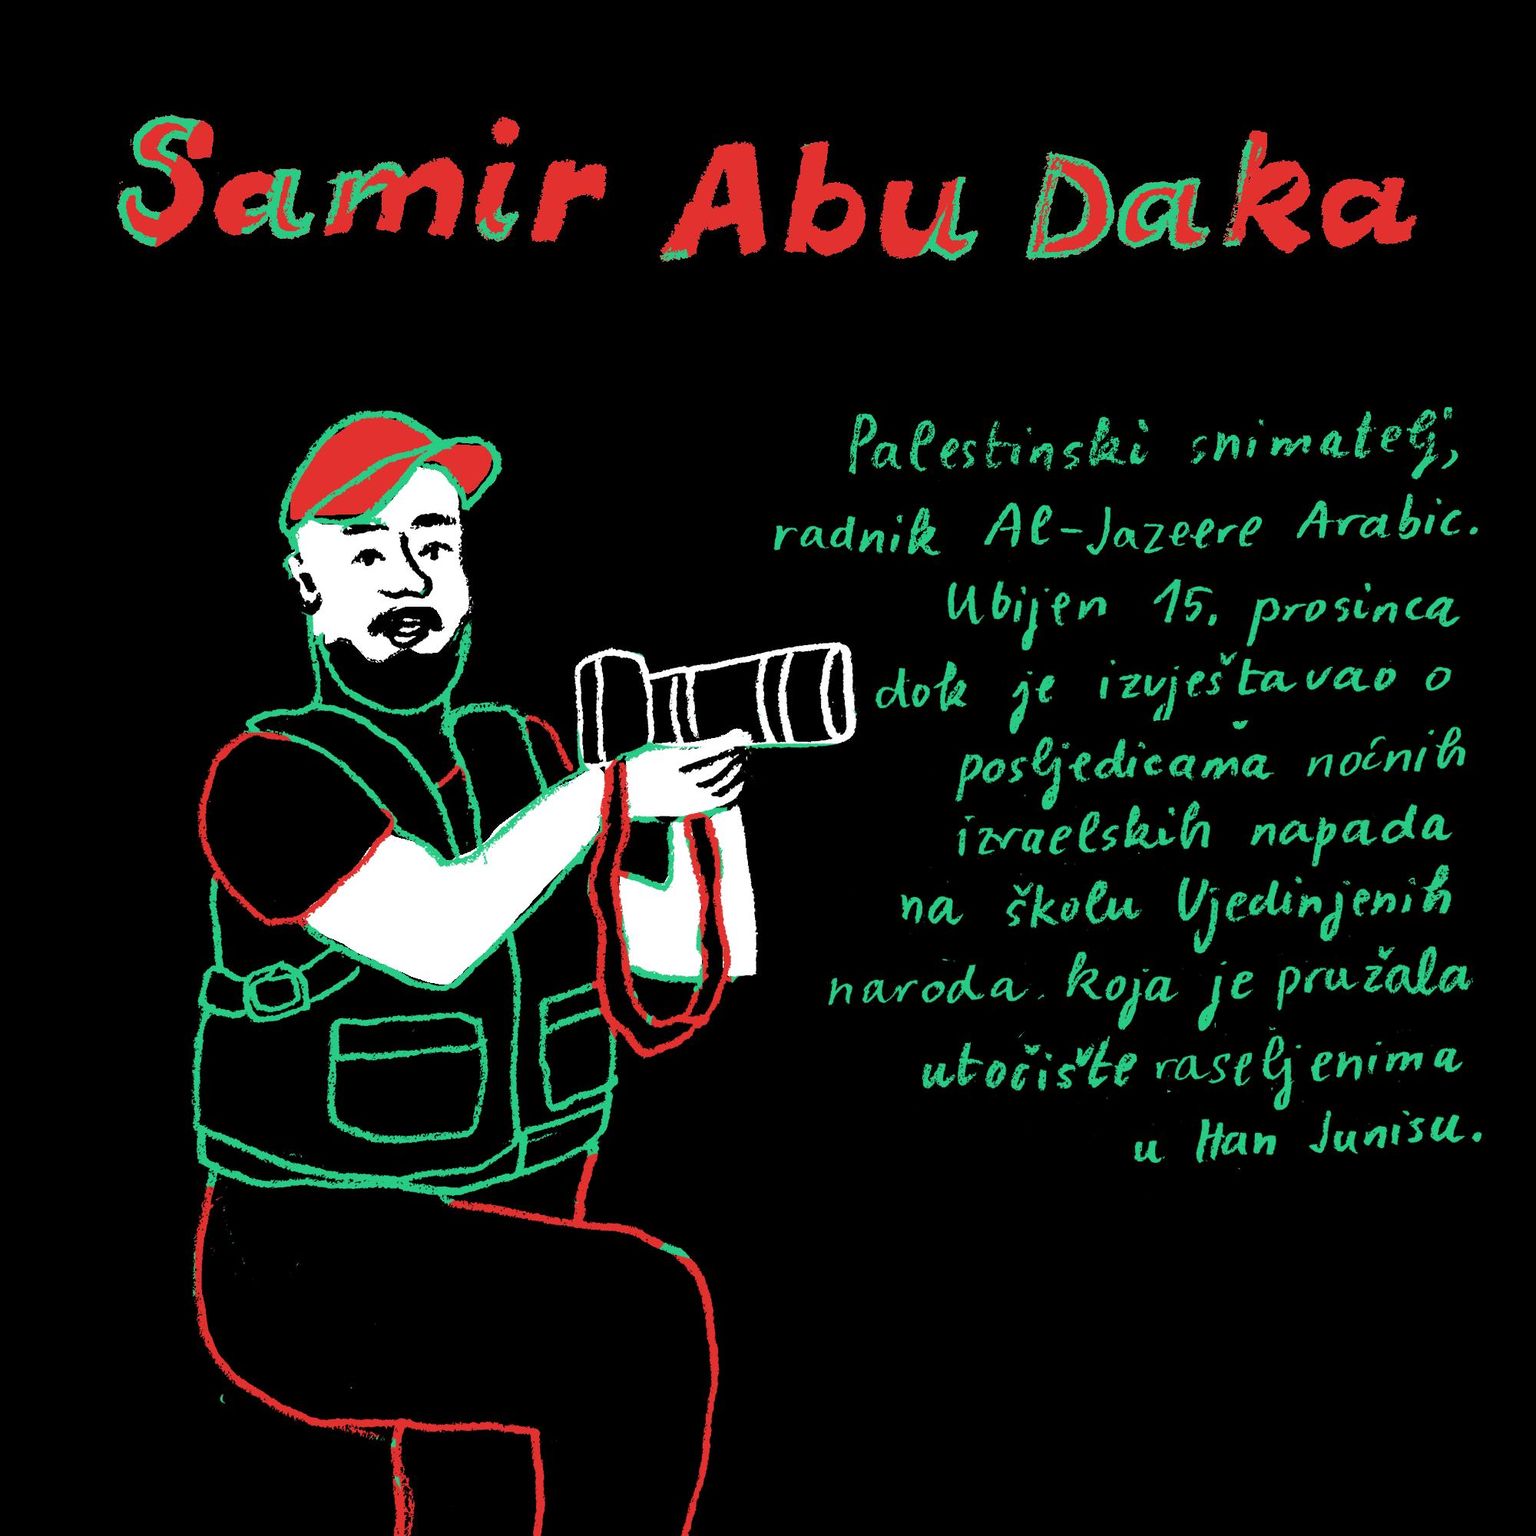 Samir Abu Daka
Palestinski snimatelj,
radnik Al-Jazeere Arabic.
Ubijen 15. prosinca
dok je izvještavao o
posljedicama noćnih
izraelskih napada
na školu Ujedinjenih
naroda koja je pružala
utočište raseljenima
u Han Junisu.